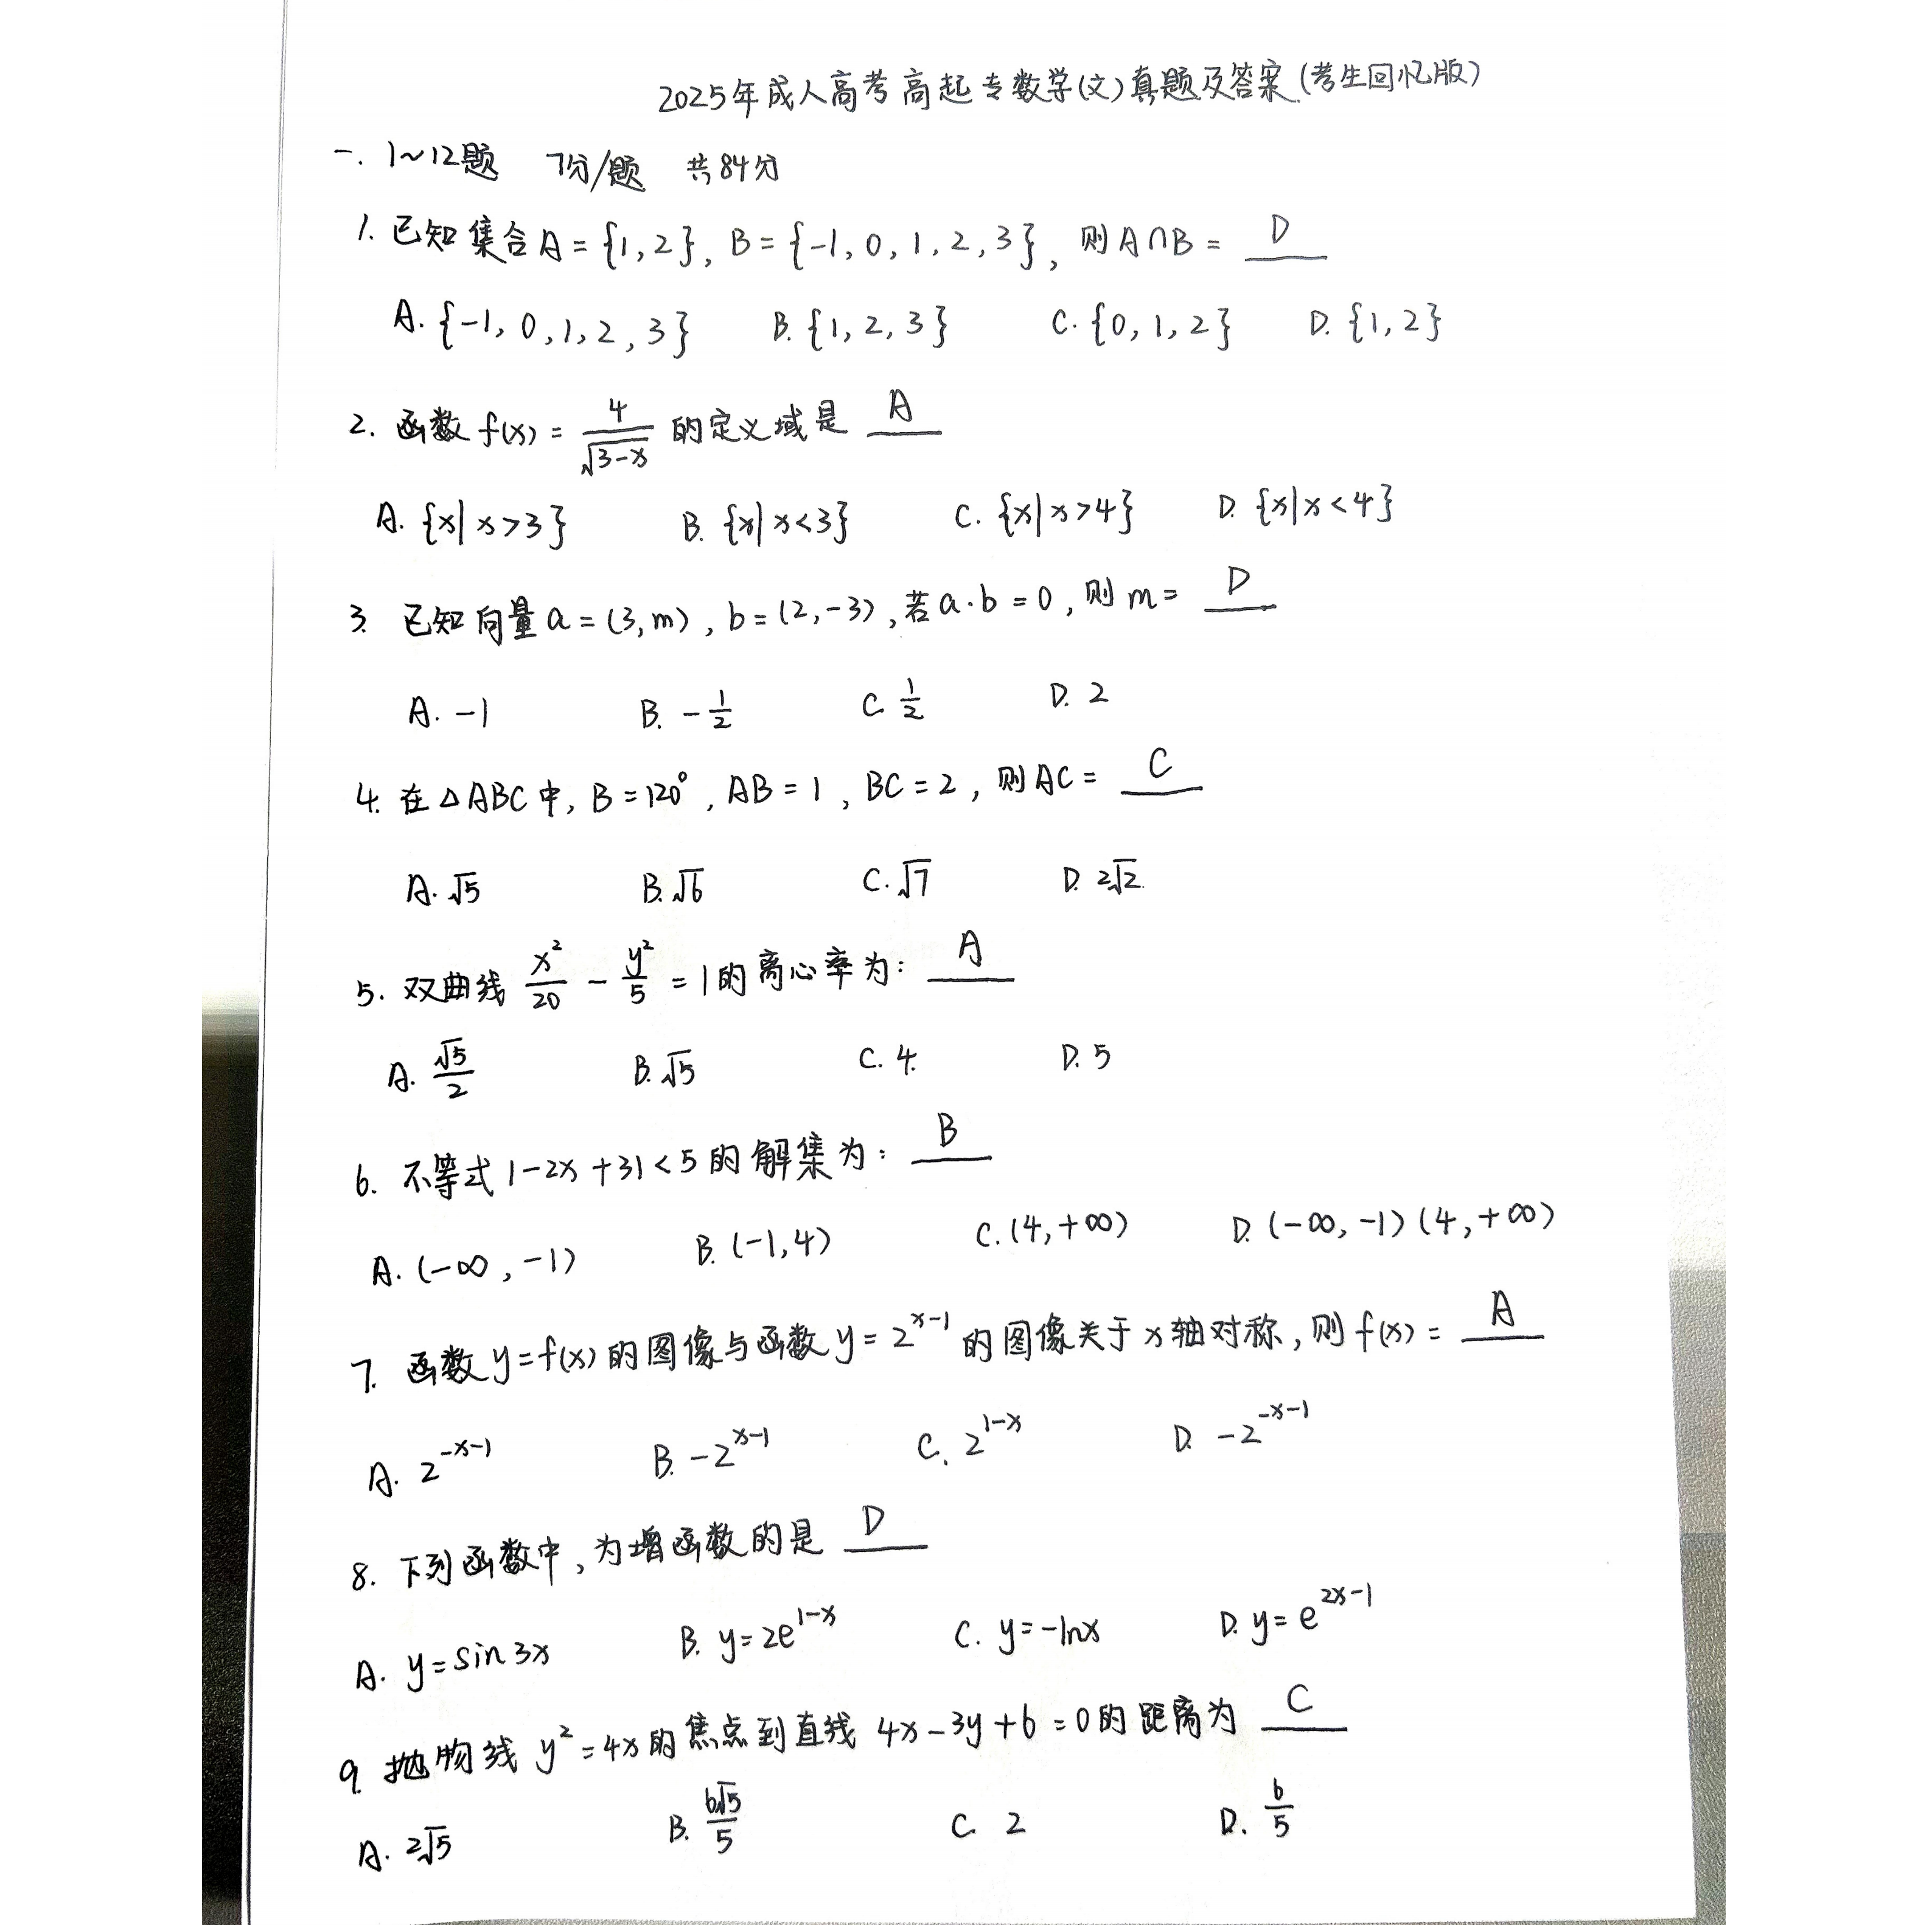 2025年成人高考高起专数学(文)真题及答案(考生回忆版)
一. 1~12题 7分/题 共84分
1. 已知集合A={1,2}, B={-1,0,1,2,3}, 则A∩B= D
A. {-1,0,1,2,3} B. {1,2,3} C. {0,1,2} D. {1,2}
2. 函数f(x)=4/√(3-x) 的定义域是 A
A. {x|x>3} B. {x|x<3} C. {x|x>4} D. {x|x<4}
3. 已知向量a=(3,m), b=(2,-3), 若a·b=0, 则m= D
A. -1 B. -1/2 C. 1/2 D. 2
4. 在△ABC中, B=120°, AB=1, BC=2, 则AC= C
A. √5 B. √6 C. √7 D. 2√2
5. 双曲线 x²/20 - y²/5 =1的离心率为: A
A. √5/2 B. √5 C. 4 D. 5
6. 不等式|-2x+3|<5的解集为: B
A. (-∞,-1) B. (-1,4) C. (4,+∞) D. (-∞,-1)(4,+∞)
7. 函数y=f(x)的图像与函数y=2^(x-1)的图像关于x轴对称, 则f(x)= A
A. 2^(-x-1) B. -2^(x-1) C. 2^(1-x) D. -2^(-x-1)
8. 下列函数中, 为增函数的是 D
A. y=sin3x B. y=2e^(1-x) C. y=-lnx D. y=e^(2x-1)
9. 抛物线y²=4x的焦点到直线 4x-3y+6=0的距离为 C
A. 2√5 B. 6√5/5 C. 2 D. 6/5